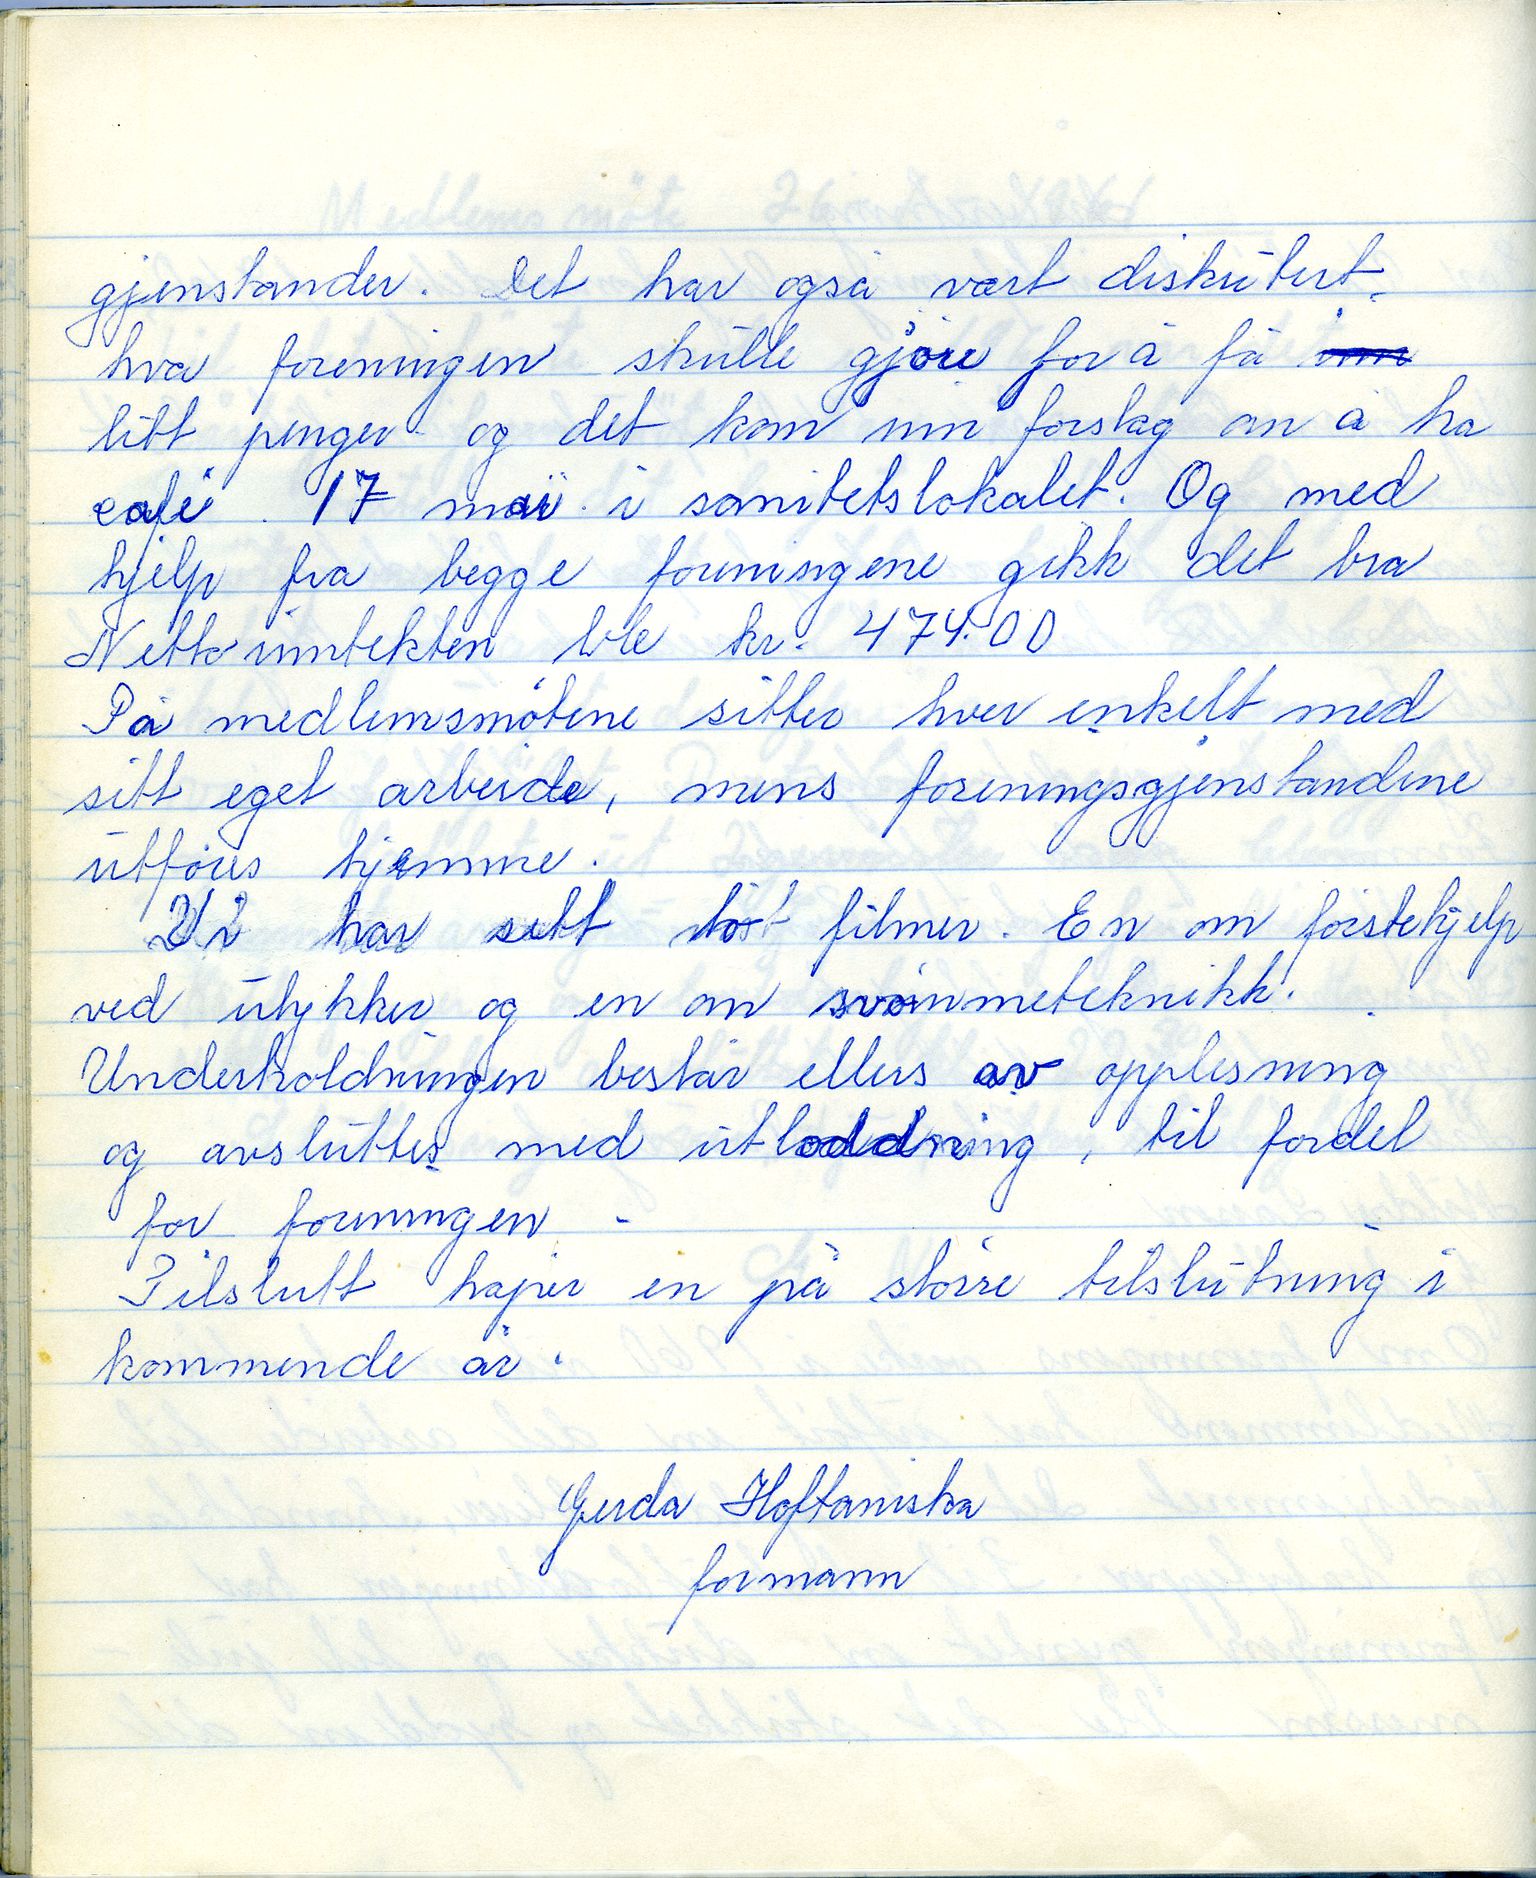 gjenstander. Det har også vært diskutert,
hva foreningen skulle gjøre for å få
litt penger og det kom inn forslag om å ha
cafe 17 mai i sanitetslokalet. Og med
hjelp fra begge foreningene gikk det bra
Netto inntekten ble kr. 474.00
På medlemsmøtene sitter hver enkelt med
sitt eget arbeide, mens foreningsgjenstandene
utføres hjemme.
Vi har sett filmer. En om førstehjelp
ved ulykker og en om svømmeteknikk.
Underholdningen består ellers av opplesning
og avsluttes med utloddning, til fordel
for foreningen -
Tilslutt håper en på større tilslutning i
kommende år.
Gerda Hoftaniska
formann